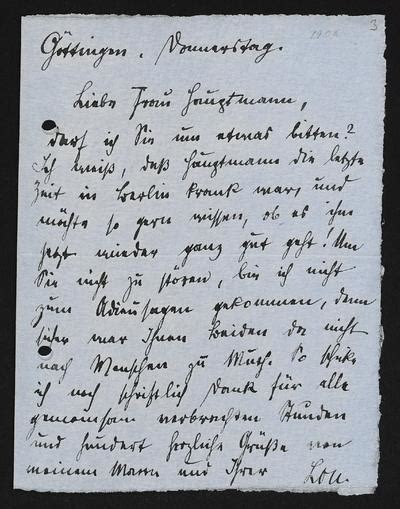 3
1904
Göttingen. Donnerstag.
Liebe Frau Hauptmann,
darf ich Sie um etwas bitten?
Ich weiß, daß Hauptmann die letzte
Zeit in Berlin krank war, und
möchte so gern wissen, ob es ihm
jetzt wieder ganz gut geht! Um
Sie nicht zu stören, bin ich nicht
zum Adieusagen gekommen, denn
sicher war Ihnen Beiden da nicht
nach Menschen zu Muth. So schicke
ich noch schriftlich Dank für alle
gemeinsam verbrachten Stunden
und hundert herzliche Grüße von
meinem Mann und Ihrer Lou.